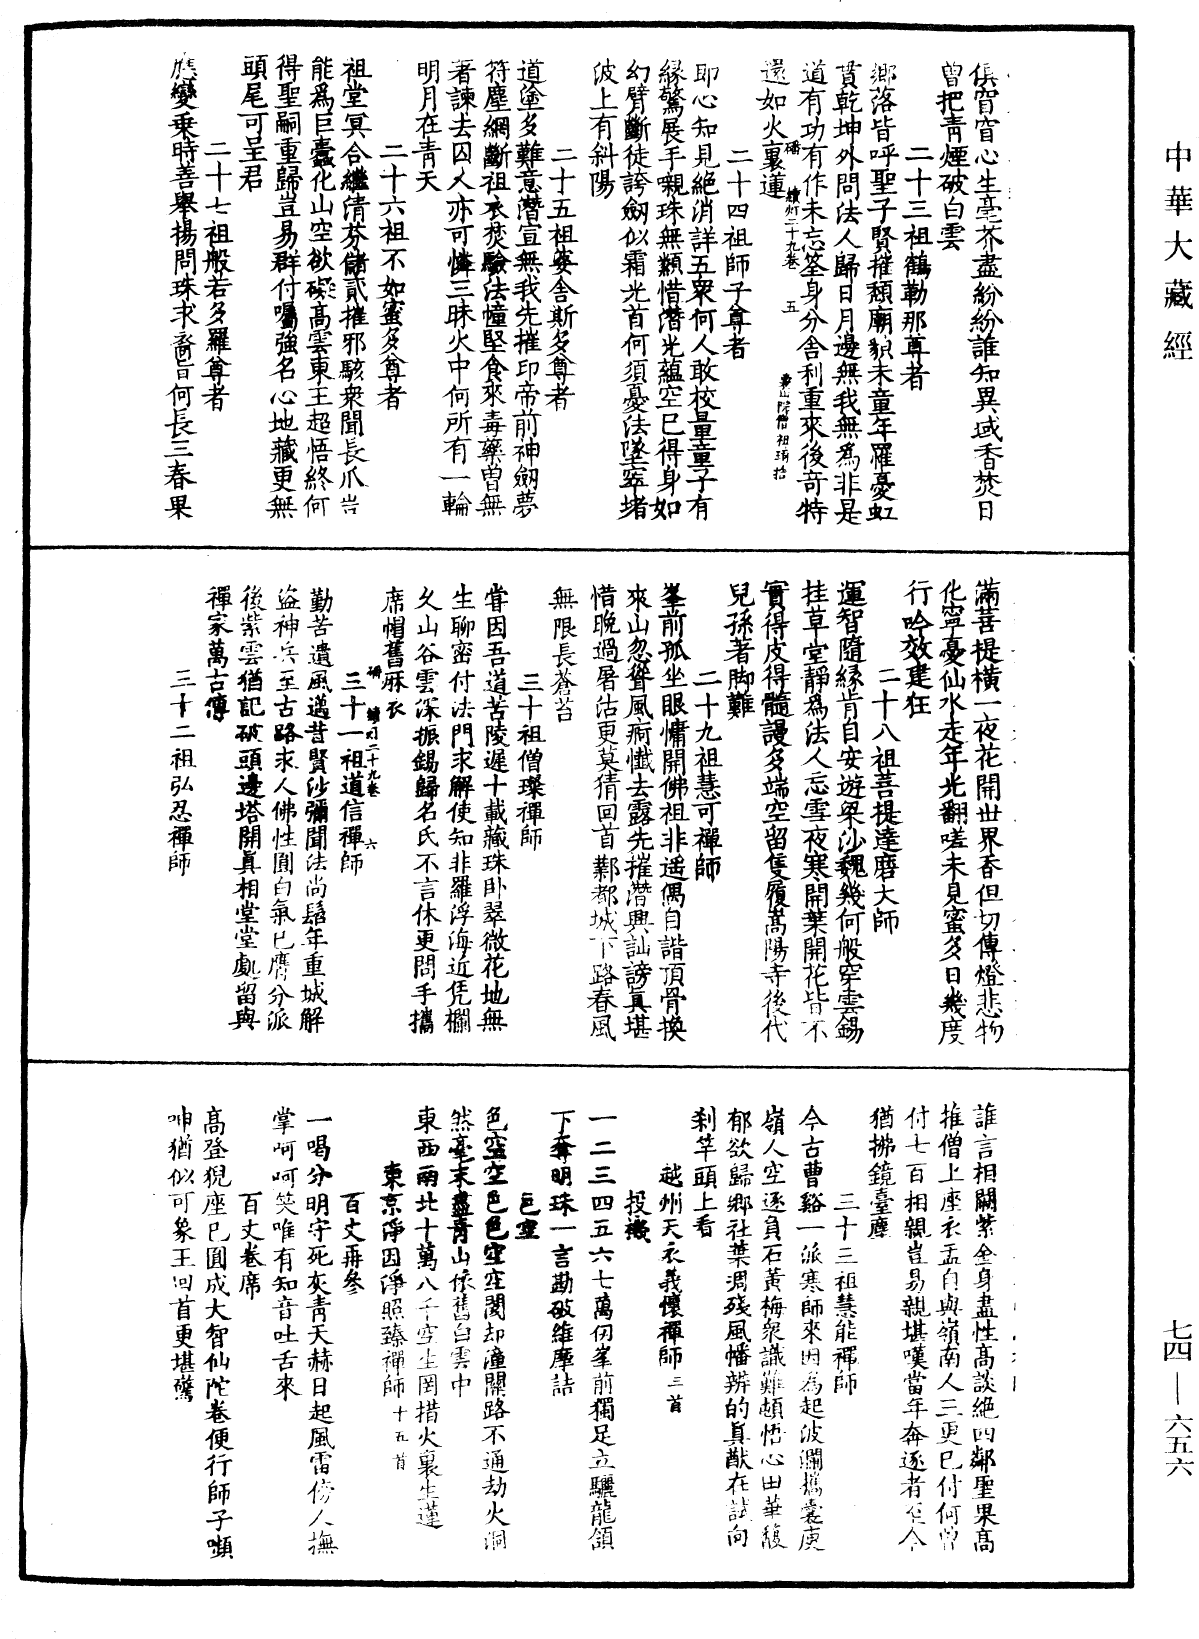 中華大藏經
俱窅窅心生毫芥盡紛紛誰知異域香焚日
曾把青煙破白雲
二十三祖鶴勒那尊者
鄉落皆呼聖子賢摧頹廟貌未童年羅憂虹
貫乾坤外問法人歸日月邊無我無為非是
道有功有作未忘筌身分舍利重來後奇特
還如火裏蓮
續灯二十九卷 五
二十四祖師子尊者
即心知見絕消詳五衆何人敢校量童子有
緣驚展手嚫珠無纇惜潛光蘊空已得身如
幻臂斷徒誇劒似霜光首何須憂法墜窣堵
波上有斜陽
二十五祖婆舍斯多尊者
道塗多難意潛宣無我先摧印帝前神劒夢
符塵網斷祖衣焚驗法幢堅食來毒藥曾無
著諫去囚人亦可憐三昧火中何所有一輪
明月在青天
二十六祖不如蜜多尊者
祖堂冥合繼清芬儲貳摧邪駭衆聞長爪豈
能為巨蠹化山空欲礙高雲東王超悟終何
得聖嗣重歸豈易群付囑強名心地藏更無
頭尾可呈君
二十七祖般若多羅尊者
應變乘時善舉揚問珠求裔旨何長三春果
滿菩提橫一夜花開世界香但切傳燈悲物
化寧憂仙水走年光翻嗟未見蜜多日幾度
行吟效建狂
二十八祖菩提達磨大師
運智隨緣肯自安遊梁涉魏幾何般穿雲錫
挂草堂靜為法人忘雪夜寒開葉開花皆不
實得皮得髓謾多端空留隻履嵩陽寺後代
兒孫著脚難
二十九祖慧可禪師
峯前孤坐眼慵開佛祖非遥偶自諧頂骨換
來山忽聳風痾懺去露先摧潛興訕謗眞堪
惜晚過屠沽更莫猜回首鄴都城下路春風
無限長蒼苔
三十祖僧璨禪師
嘗因吾道苦陵遲十載藏珠卧翠微花地無
生聊密付法門求解使知非羅浮海近凭欄
久山谷雲深振錫歸名氏不言休更問手攜
席帽舊麻衣
續灯二十九卷 六
三十一祖道信禪師
勤苦遺風邁昔賢沙彌聞法尚髫年重城解
盜神兵至古路求人佛性圓白氣已膺分派
後紫雲猶記破頭邊塔開眞相堂堂處留與
禪家萬古傳
三十二祖弘忍禪師
誰言相闕紫金身盡性高談絕四鄰聖果高
推僧上座衣盂自與嶺南人三更已付何曾
付七百相親豈易親堪嘆當年奔逐者至今
猶拂鏡臺塵
三十三祖慧能禪師
今古曹谿一派寒師來因為起波瀾攜囊庾
嶺人空逐負石黃梅衆識難頓悟心田華馥
郁欲歸鄉社葉凋殘風幡辨的眞猷在試向
剎竿頭上看
越州天衣義懷禪師三首
投機
一二三四五六七萬仞峯前獨足立驪龍頷
下奪明珠一言勘破維摩詰
色空
色空空色色空空閡却潼關路不通劫火洞
然毫末盡青山依舊白雲中
東西南北十萬八千空生罔措火裏生蓮
東京淨因淨照臻禪師十五首
百丈再參
一喝分明守死灰青天赫日起風雷傍人撫
掌呵呵笑唯有知音吐舌來
百丈卷席
高登猊座已圓成大智仙陀卷便行師子嚬
呻猶似可象王回首更堪驚
七四—六五六